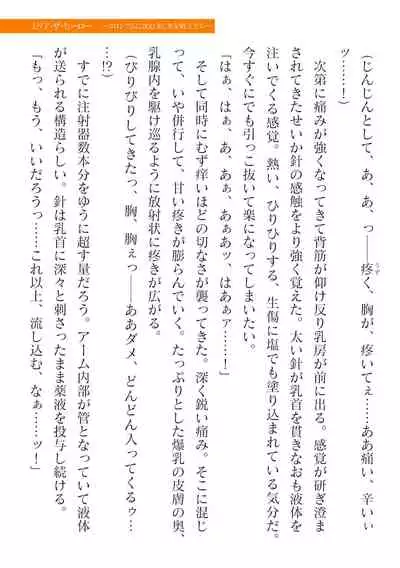 (じんじんとして、あ、あ、っ――疼く、胸が、疼いてぇ……ああ痛い、辛いぃ
ッ……！)
次第に痛みが強くなってきて背筋が仰け反り乳房が前に出る。感覚が研ぎ澄ま
されてきたせいか針の感触をより強く覚えた。太い針が乳首を貫きなおも液体を
注いでくる感覚。熱い、ひりひりする、生傷に塩でも塗り込まれている気分だ。
今すぐにでも引っこ抜いて楽になってしまいたい。
「はぁ、はぁ、あ、あぁ、あぁあッ、はあぁァ……！」
そして同時にむず痒いほどの切なさが襲ってきた。深く鋭い痛み。そこに混じ
って、いや併行して、甘い疼きが膨らんでいく。たっぷりとした爆乳の皮膚の奥、
乳腺内を駆け巡るように放射状に疼きが広がる。
(びりびりしてきたっ、胸、胸ぇっ――ああダメ、どんどん入ってくるゥ…
…！？)
すでに注射器数本分をゆうに超す量だろう。アーム内部が管となっていて液体
が送られる構造らしい。針は乳首に深々と刺さったまま薬液を投与し続ける。
「もっ、もう、いいだろうっ……これ以上、流し込む、なぁ……ッ！」